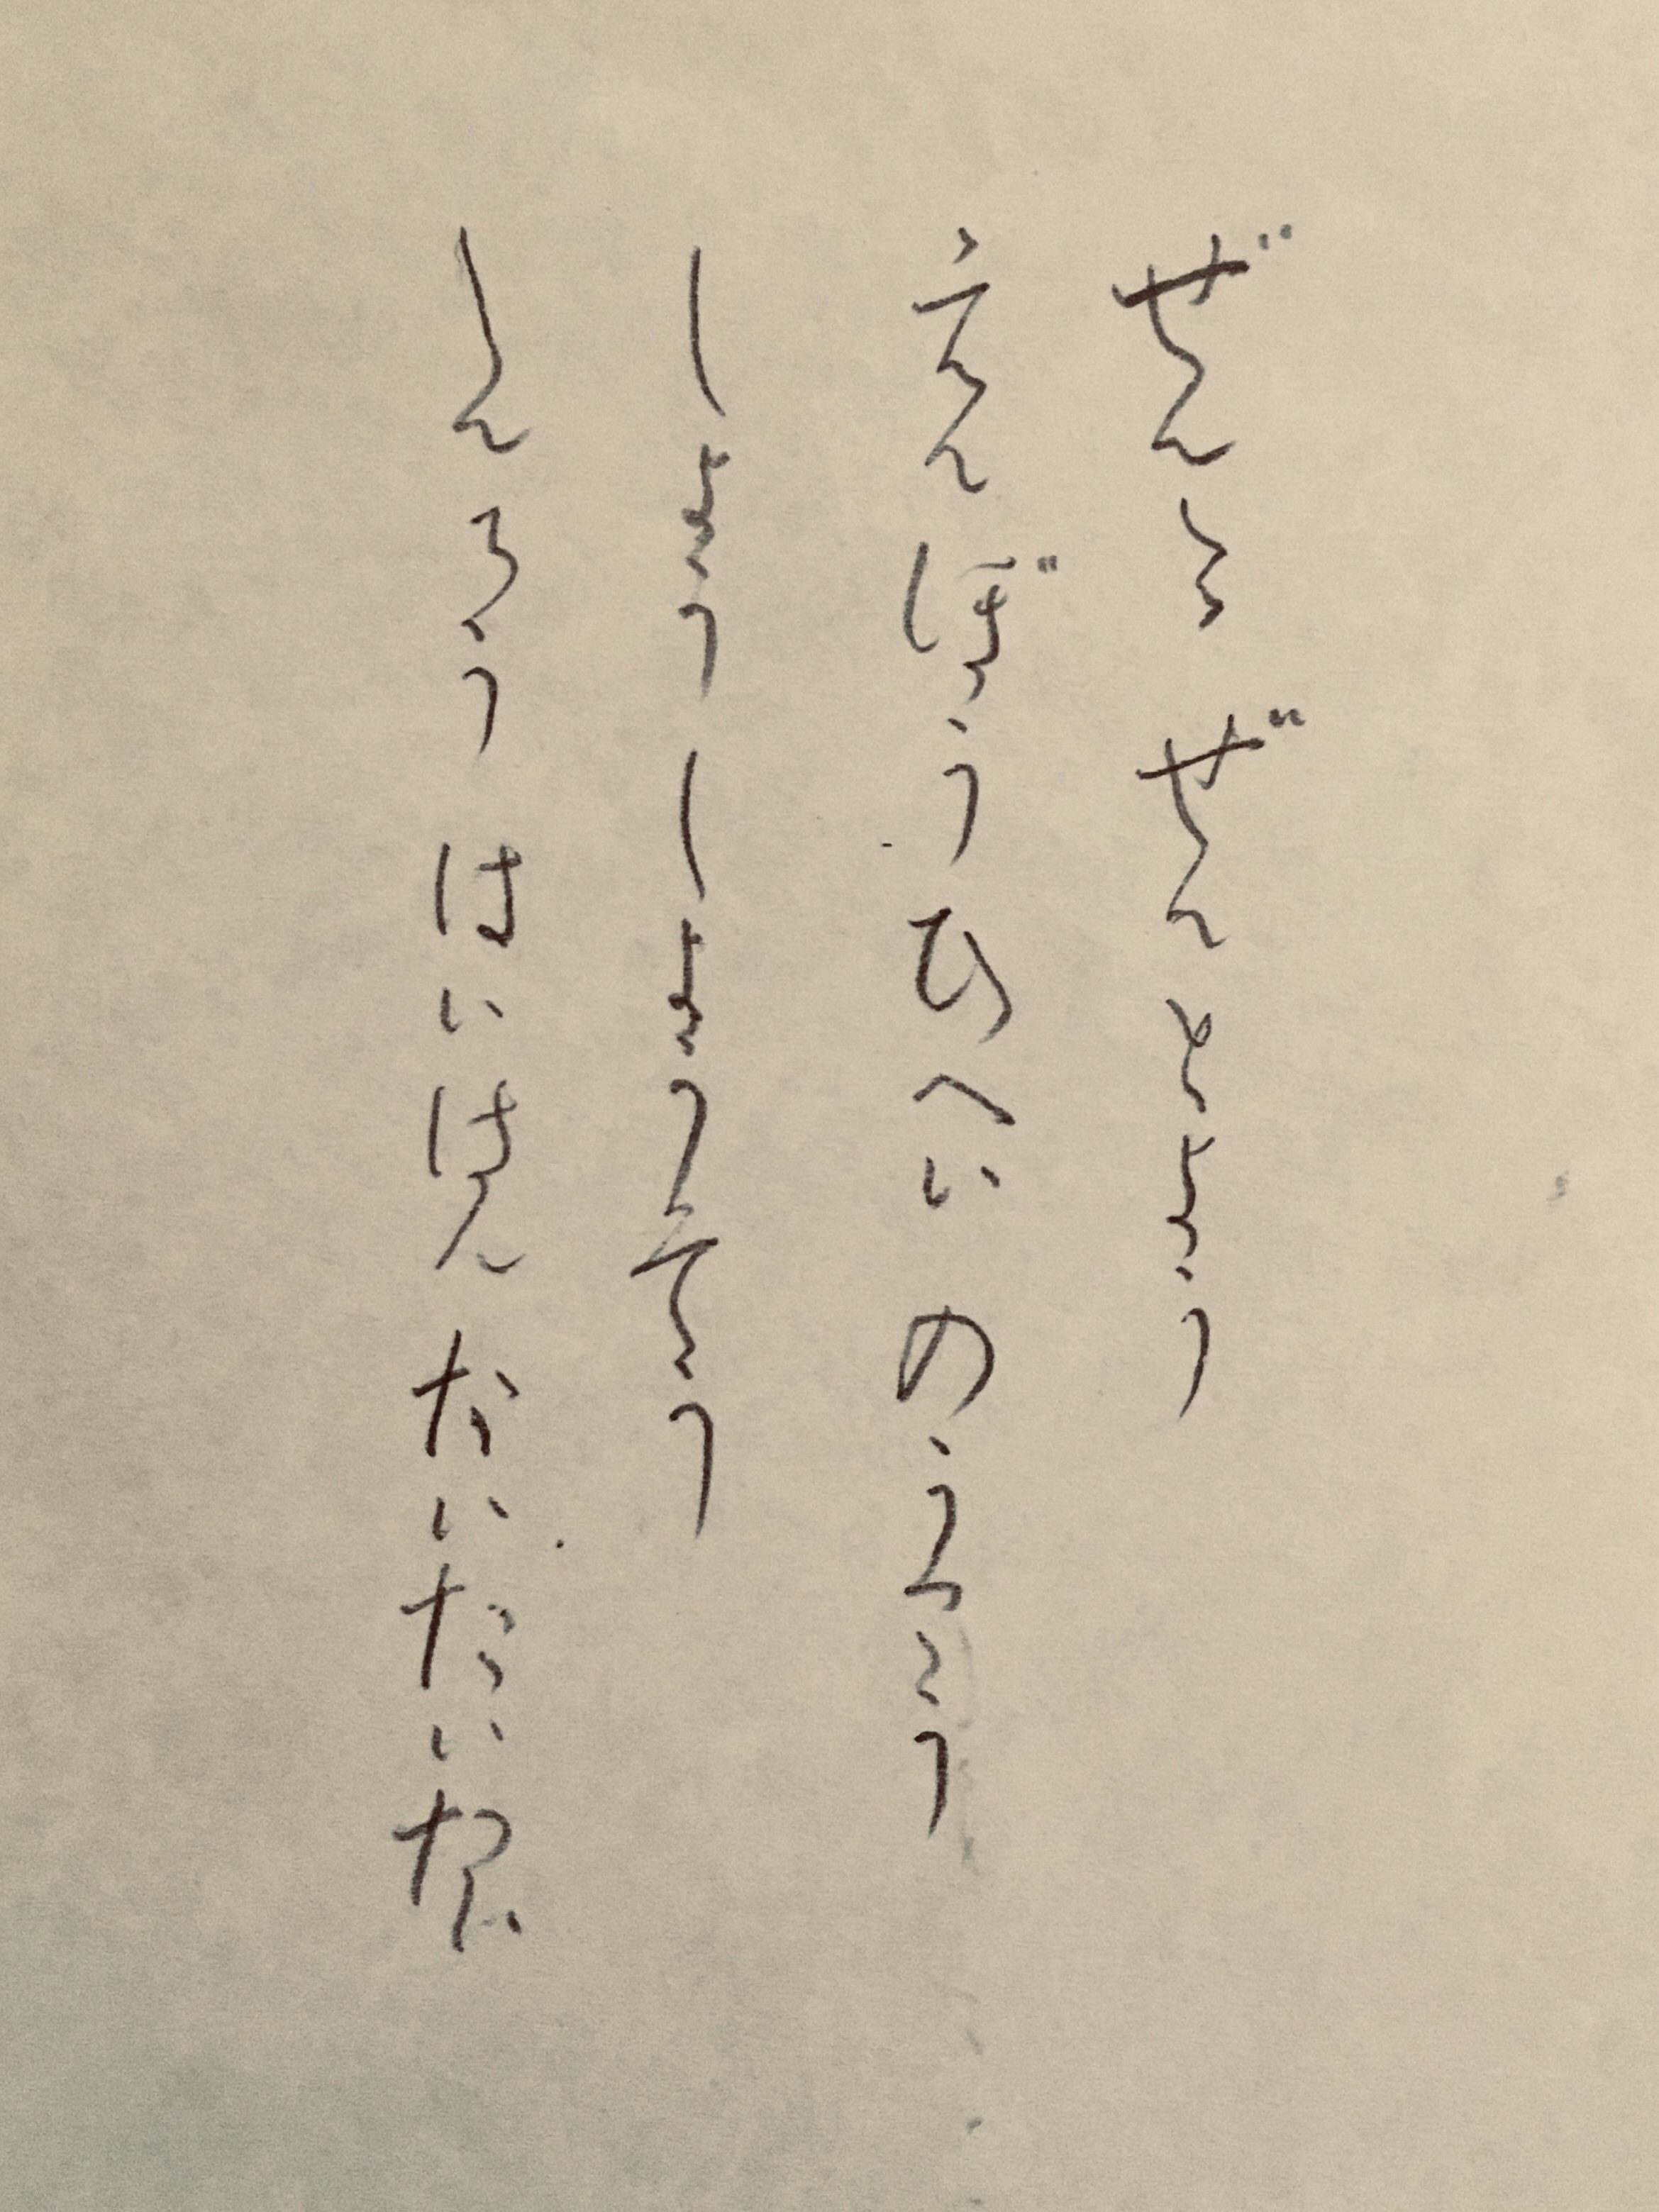 ぜん ぜんとよう
えんぼうひへい のう
しょうしょうそう
しんろう はいはん たいたい